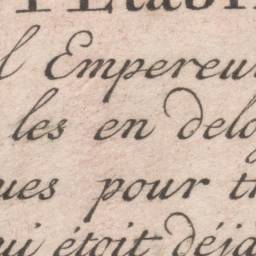 l Empereur
les en delo
ues pour t
ui étoit déja